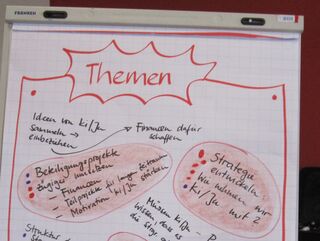 FRANKEN
Themen
Ideen von Ki/Ju
sammeln →
einbeziehen
Finanzen dafür
schaffen
Beteiligungsprojekte
zügiger umsetzen
- Finanzen
- Teilprojekte für langen Zeitraum
- Motivation Ki/Ju stärken
Strategie
entwickeln
Wie nehmen wir
Ki/Ju mit?
Müssen Ki/Ju
wissen dass es
Struktur